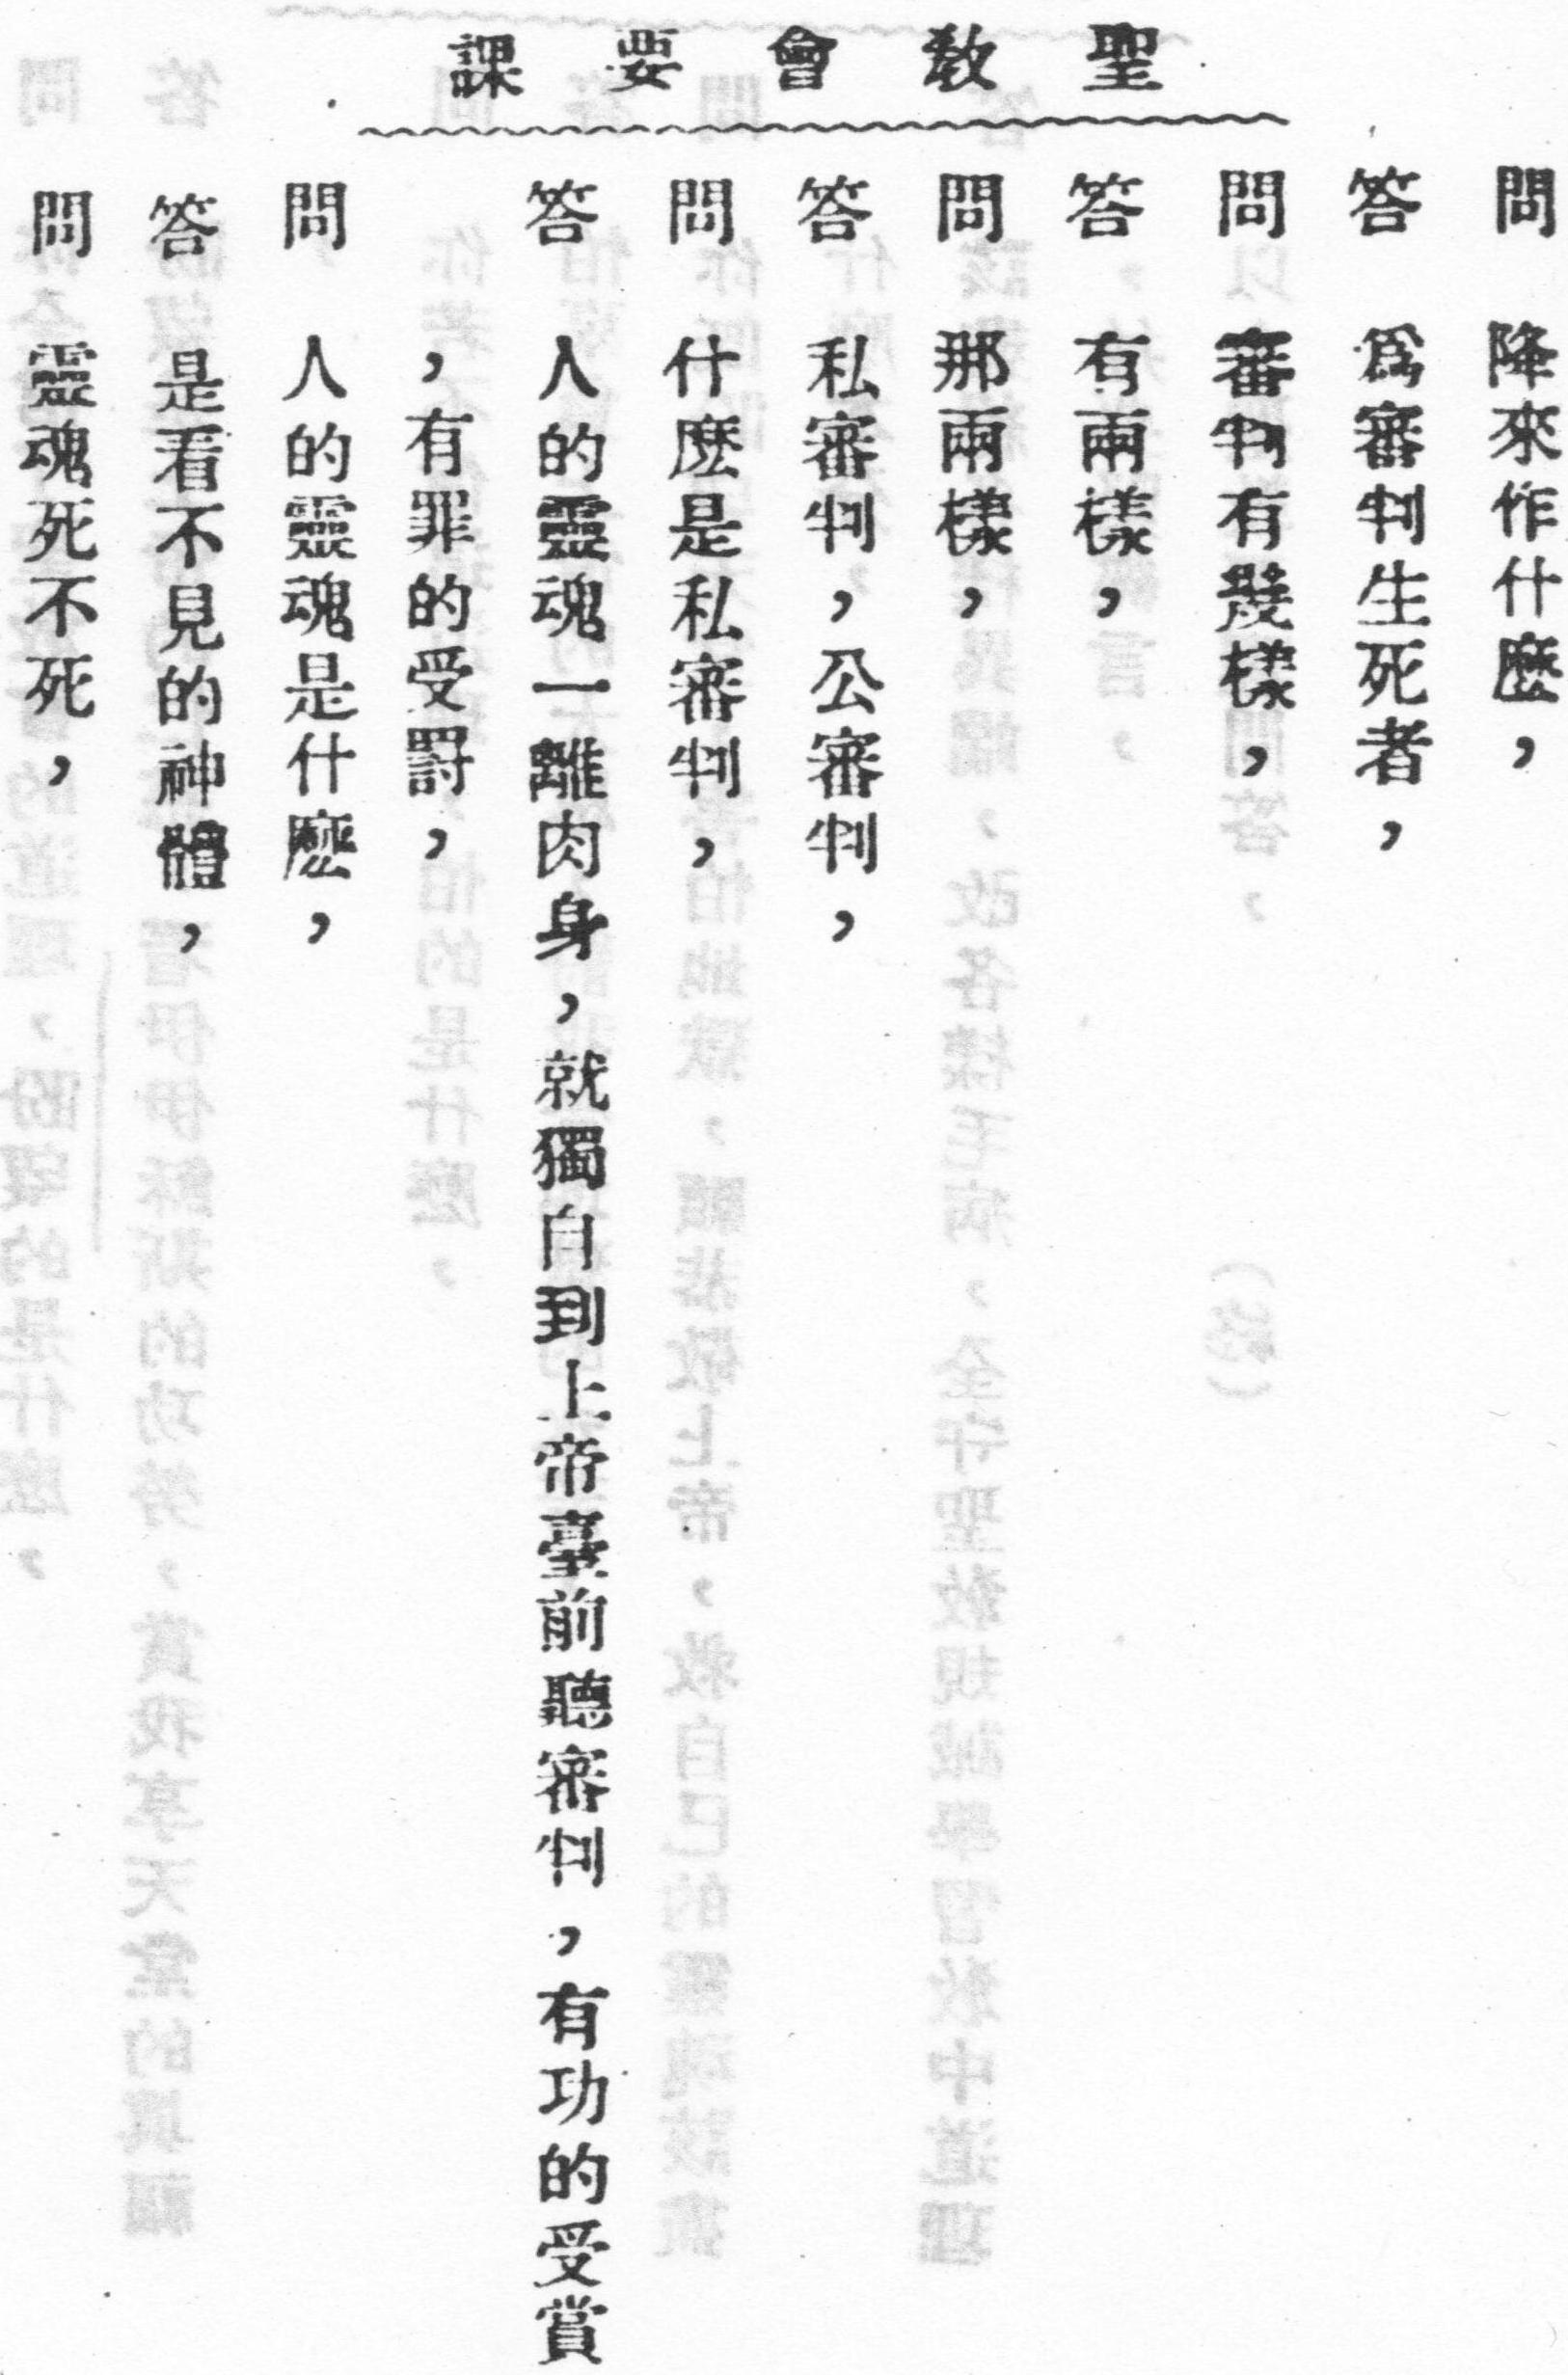 聖教會要課
問 降來作什麼，
答 爲審判生死者，
問 審判有幾樣，
答 有兩樣，
問 那兩樣，
答 私審判，公審判，
問 什麽是私審判，
答 人的靈魂一離肉身，就獨自到上帝臺前聽審判，有功的受賞
，有罪的受罰，
問 人的靈魂是什麽，
答 是看不見的神體，
問 靈魂死不死，